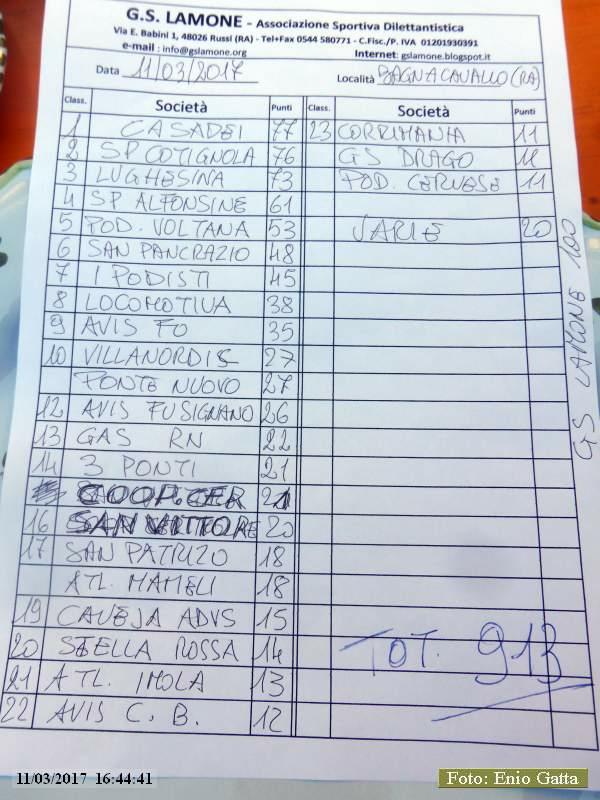 G.S. LAMONE - Associazione Sportiva Dilettantistica
Via E. Babini 1, 48026 Russi (RA) - Tel+Fax 0544 580771 - C.Fisc./P. IVA 01201930391
e-mail : info@gslamone.org Internet: gslamone.blogspot.it
Data 11/03/2017 Località BAGNACAVALLO (RA)
Class. Società Punti Class. Società Punti
1 CASADEI 77 23 CORRIMANIA 11
2 SP COTIGNOLA 76 GS DRAGO 11
3 LUGHESINA 73 POD. CERVESE 11
4 SP ALFONSINE 61
5 POD. VOLTANA 53 VARIE 20
6 SAN PANCRAZIO 48
7 I PODISTI 45
8 LOCOMOTIVA 38
9 AVIS FO 35
10 VILLANORDIS 27
PONTE NUOVO 27
12 AVIS FUSIGNANO 26
13 GAS RN 22
14 3 PONTI 21
COOP. CER 21
16 SAN VITTORE 20
17 SAN PATRIZO 18
ATL. MAMELI 18
19 CAVEJA ADVS 15
20 STELLA ROSSA 14
21 ATL. IMOLA 13
22 AVIS C. B. 12
TOT. 913
GS LAMONE 100
11/03/2017 16:44:41
Foto: Enio Gatta